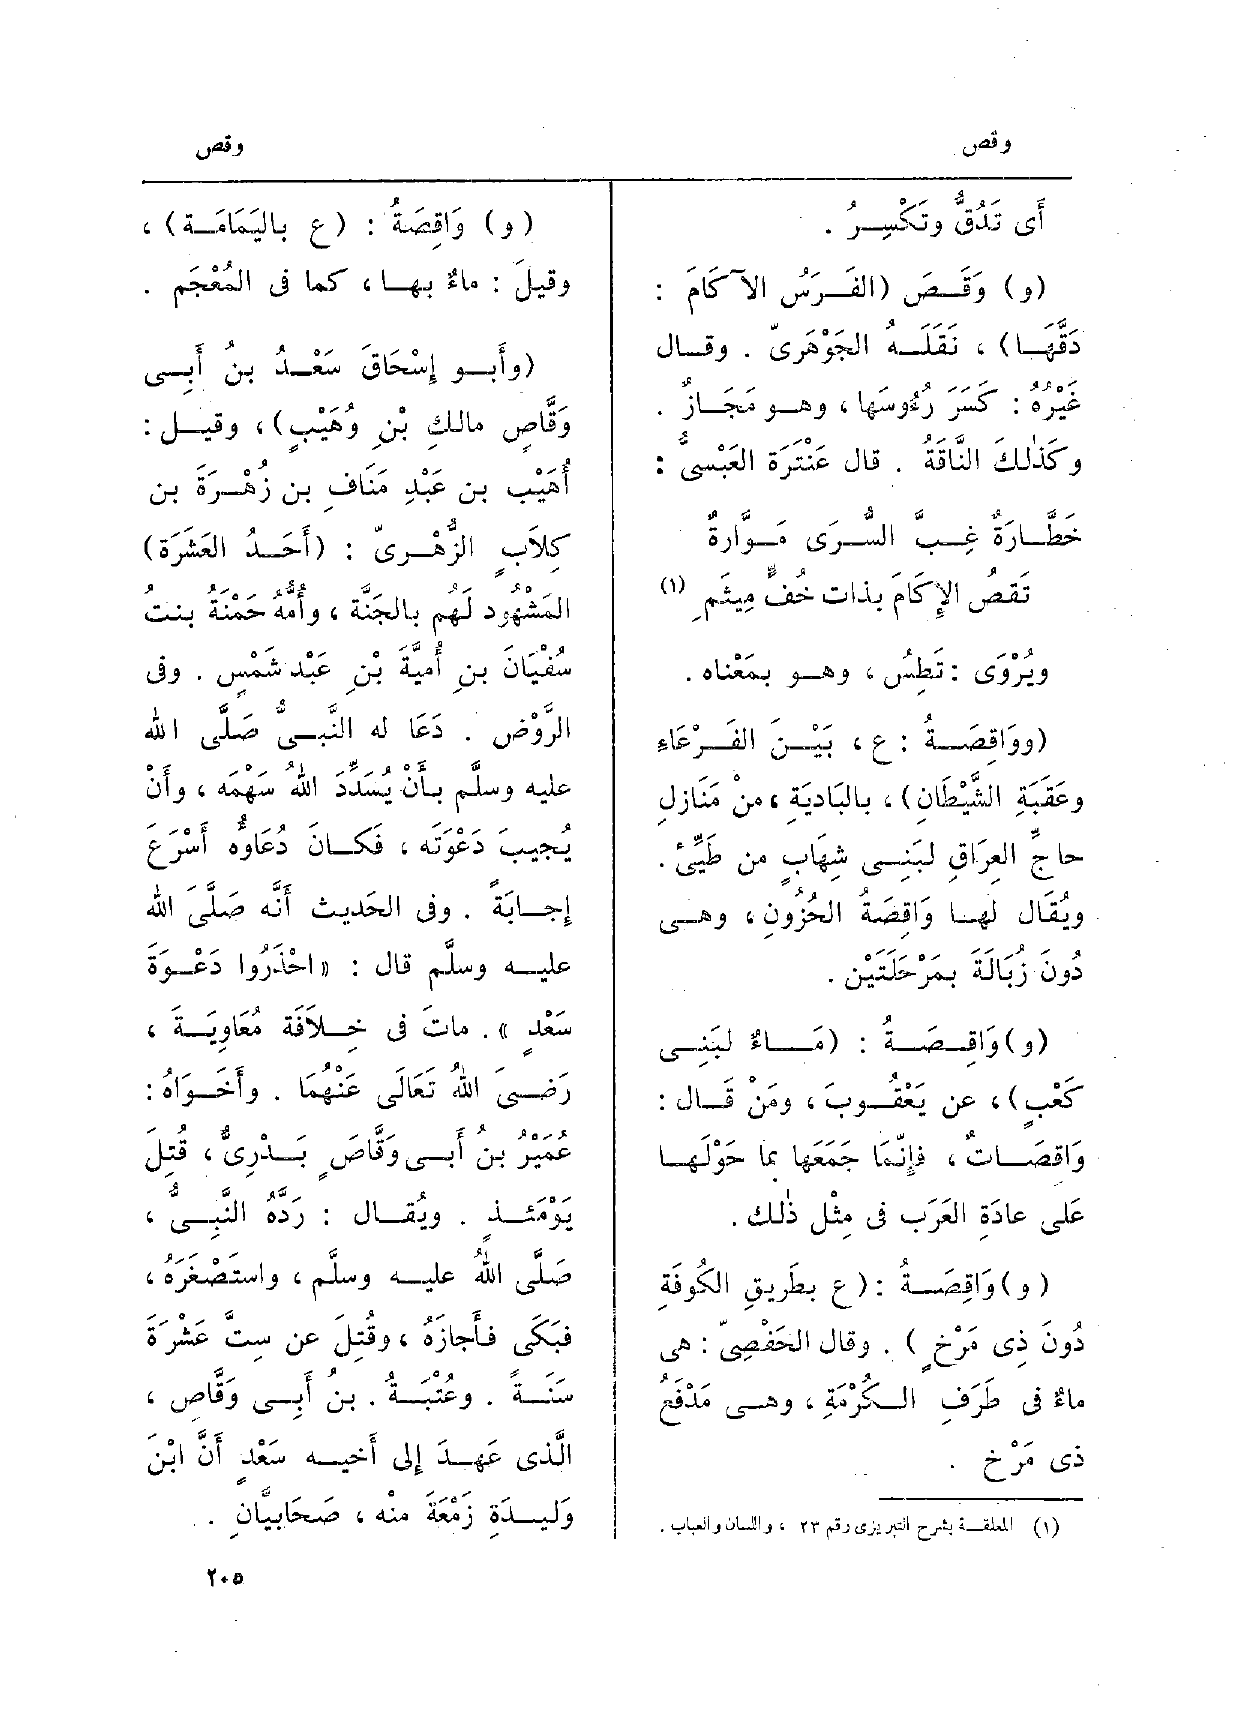 وقص
وقص
أَى تَدُقُّ وتَكْسِرُ .
(و) وَقَصَ (الفَرَسُ الآكَامَ :
دَقَّهَا) ، نَقَلَهُ الجَوْهَرِىّ . وقال
غَيْرُهُ : كَسَرَ رُءُوسَهَا ، وهو مَجَازٌ .
وكَذٰلِكَ النَّاقَةُ . قال عَنْتَرَةُ العَبْسِىُّ :
خَطَّارَةٌ غِبَّ السُّرَى مَوَّارَةٌ
تَقِصُ الإِكَامَ بذَات خُفٍّ مِيثَمِ (١)
ويُرْوَى : تَطِسُ ، وهو بمَعْنَاه .
(ووَاقِصَةُ : ع ، بَيْنَ الفَرْعَاءِ
وعَقَبَةِ الشَّيْطَان) ، بالبَادِيَة ، مِنْ مَنَازِلِ
حاجِّ العِرَاقِ لبَنِى شِهَابٍ من طَيِّئْ .
ويُقَال لها وَاقِصَةُ الحُزُونِ ، وهى
دُونَ زُبَالَةَ بمَرْحَلَتَيْن .
(و) وَاقِصَةُ : (مَاءٌ لبَنِى
كَعْبٍ) ، عن يَعْقُوبَ ، ومَنْ قَال :
وَاقِصَاتٌ ، فإِنَّمَا جَمَعَهَا بما حَوْلَها
عَلى عادَةِ العَرَب فى مِثْلِ ذٰلك .
(و) وَاقِصَةُ : (ع بطَرِيقِ الكُوفَةِ
دُونَ ذِى مَرْخٍ ) . وقال الحَفْصِىّ : هى
ماءٌ فى طَرَفِ الكُرْمَةِ ، وهى مَدْفَعُ
ذى مَرْخ .
(١) المعلقة بشرح التبريزى رقم ٢٣ ، واللسان والعباب .
(و) وَاقِصَةُ : (ع باليَمَامَة) ،
وقيلَ : ماءٌ بها ، كما فى المُعْجَم .
(وأَبو إِسْحَاقَ سَعْدُ بنُ أَبِى
وَقَّاصٍ مالكِ بْنِ وُهَيْبٍ) ، وقيل :
أُهَيْب بن عَبْدِ مَنَافِ بن زُهْرَةَ بن
كِلَابٍ الزُّهْرِىّ : (أَحَدُ العَشَرَة)
المَشْهُود لَهُم بالجَنَّة ، وأُمُّهُ حَمْنَةُ بنتُ
سُفْيَانَ بنِ أُمَيَّةَ بْنِ عَبْد شَمْسٍ . وفى
الرَّوْض . دَعَا له النَّبىُّ صَلَّى الله
عليه وسلَّم بأَنْ يُسَدِّدَ اللهُ سَهْمَه ، وأَنْ
يُجيبَ دَعْوَتَه ، فكَانَ دُعَاؤُه أَسْرَعَ
إِجابَةً . وفى الحَديث أَنَّه صَلَّى الله
عليه وسلَّم قال : «احْذَرُوا دَعْوَةَ
سَعْدٍ ». ماتَ فى خِلَافَة مُعَاويَةَ ،
رَضىَ اللهُ تَعَالَى عَنْهُمَا . وأَخَوَاهُ :
عُمَيْرُ بنُ أَبى وَقَّاصٍ بَدْرِىٌّ ، قُتِلَ
يَوْمَئذٍ . ويُقَال : رَدَّهُ النَّبىُّ ،
صَلَّى اللهُ عليه وسلَّم ، واسْتَصْغَرَهُ ،
فبَكَى فأَجازَهُ ، وقُتِلَ عن ستَّ عَشْرَةَ
سَنَةً . وعُتْبَةُ . بنُ أَبِى وَقَّاص ،
الَّذى عَهِدَ إِلى أَخيه سَعْدٍ أَنَّ ابْنَ
وَلِيدَة زَمْعَةَ منْه ، صَحَابيَّانِ .
٢٠٥